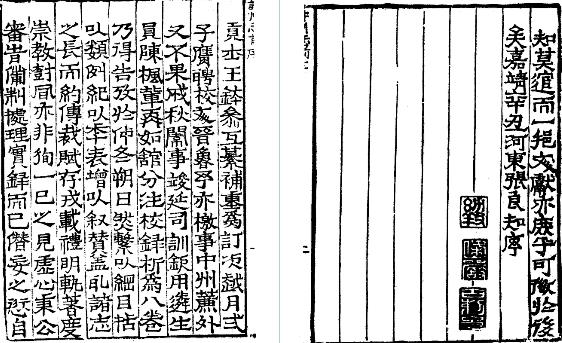 貢士王鉢叅互纂補重爲訂次越月弍
子賡聘校文晉魯予亦檄事中州薦外
又不果戒秋闈事竣延司訓鈺用遴生
員陳楓輩再如館分注校錄析爲八卷
乃得告成於仲冬朔日焚繫以綱目括
以類列紀以年表增以叙贊盖凡諸志
之長而約傳裁賦存戎載禮明軌著度
崇教對風亦非徇一己之見虛心秉公
審昔備料據理實錄而已僭妄之愆自
知莫逭而一挹文獻亦庶乎可徵於後
矣嘉靖辛丑河東張良知序